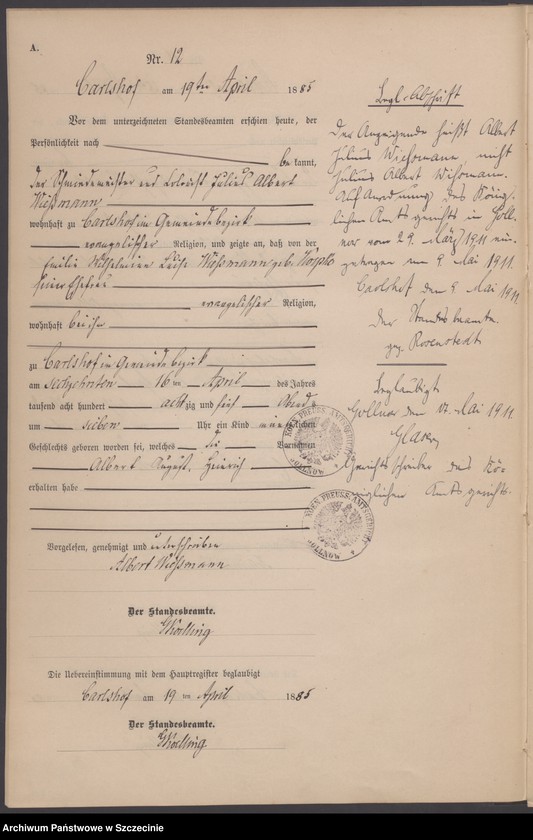 A.
Nr. 12
Carlshof am 19ten April 1885
Vor dem unterzeichneten Standesbeamten erschien heute, der
Persönlichkeit nach
be kannt,
der Schmiedemeister und Julius Albert
Wißmann
wohnhaft zu Carlshof im Gemeindebezirk
evangelischer Religion, und zeigte an, daß von der
Emilie Wilhelmine Luise Wißmann geb.
seiner Ehefrau
evangelischer Religion,
wohnhaft bei ihm
zu Carlshof im Gemeindebezirk
am sechzehnten 16 ten April des Jahres
tausend acht hundert achtzig und fünf Abends
um sieben Uhr ein Kind männlichen
Geschlechts geboren worden sei, welches die Vornamen
Albert August Heinrich
erhalten habe
Vorgelesen, genehmigt und unterschrieben
Albert Wißmann
Der Standesbeamte.
Die Uebereinstimmung mit dem Hauptregister beglaubigt
Carlshof am 19 ten April 1885
Der Standesbeamte.
Begl. Abschrift
Der Anzeigende heißt Albert
Julius Wißmann, nicht
Julius Albert Wißmann.
Auf Anordnung des König-
lichen Amtsgerichts in Goll-
now vom 29. März 1911 ein-
getragen am 9. Mai 1911.
Carlshof den 9. Mai 1911
Der Standesbeamte.
gez. Rosenstedt
Beglaubigt
Gollnow den 17. Mai 1911
Gerichtsschreiber des Kö-
niglichen Amtsgerichts.
KOEN. PREUSS. AMTSGERICHT
GOLLNOW
KOEN. PREUSS. AMTSGERICHT
GOLLNOW
Archiwum Państwowe w Szczecinie